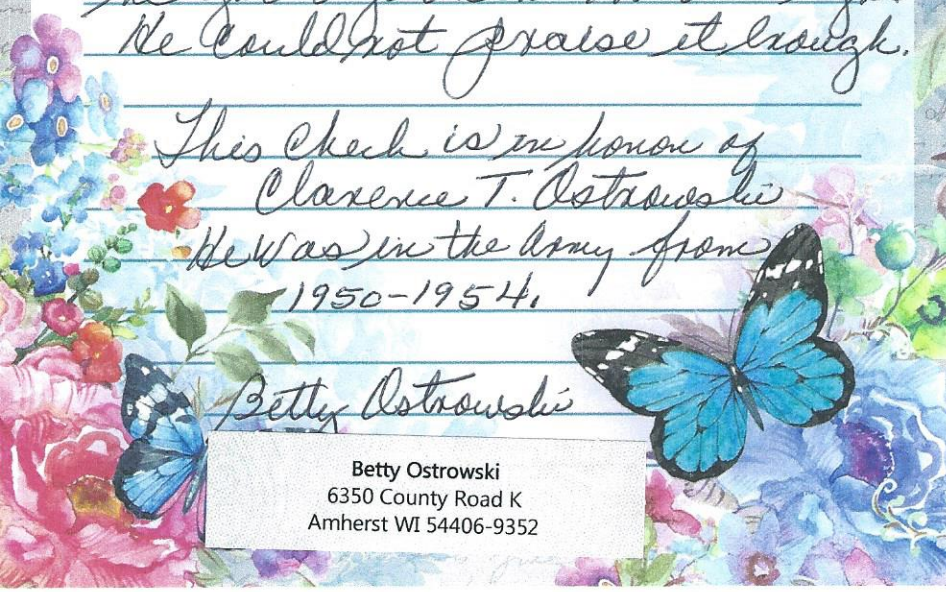 He could not praise it enough.
This check is in honor of
Clarence T. Ostrowski
He was in the army from
1950-1954.
Betty Ostrowski
Betty Ostrowski
6350 County Road K
Amherst WI 54406-9352